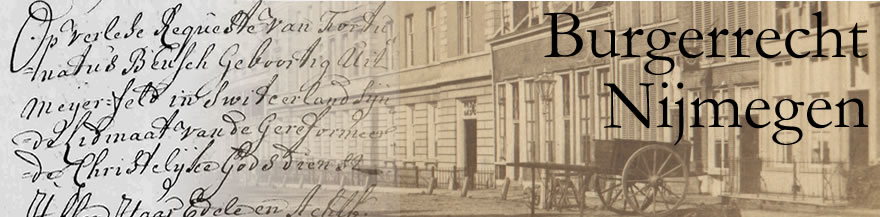 Op verleze Requeste van Fortu
=natus Beusch Geboortig uit
Meijer=feld in Switcerland Sijn
=de Lidmaat van de Gereformeer
=de Christelijke Gods dienst
Haar Edele en Achtb.
Burgerrecht
Nijmegen